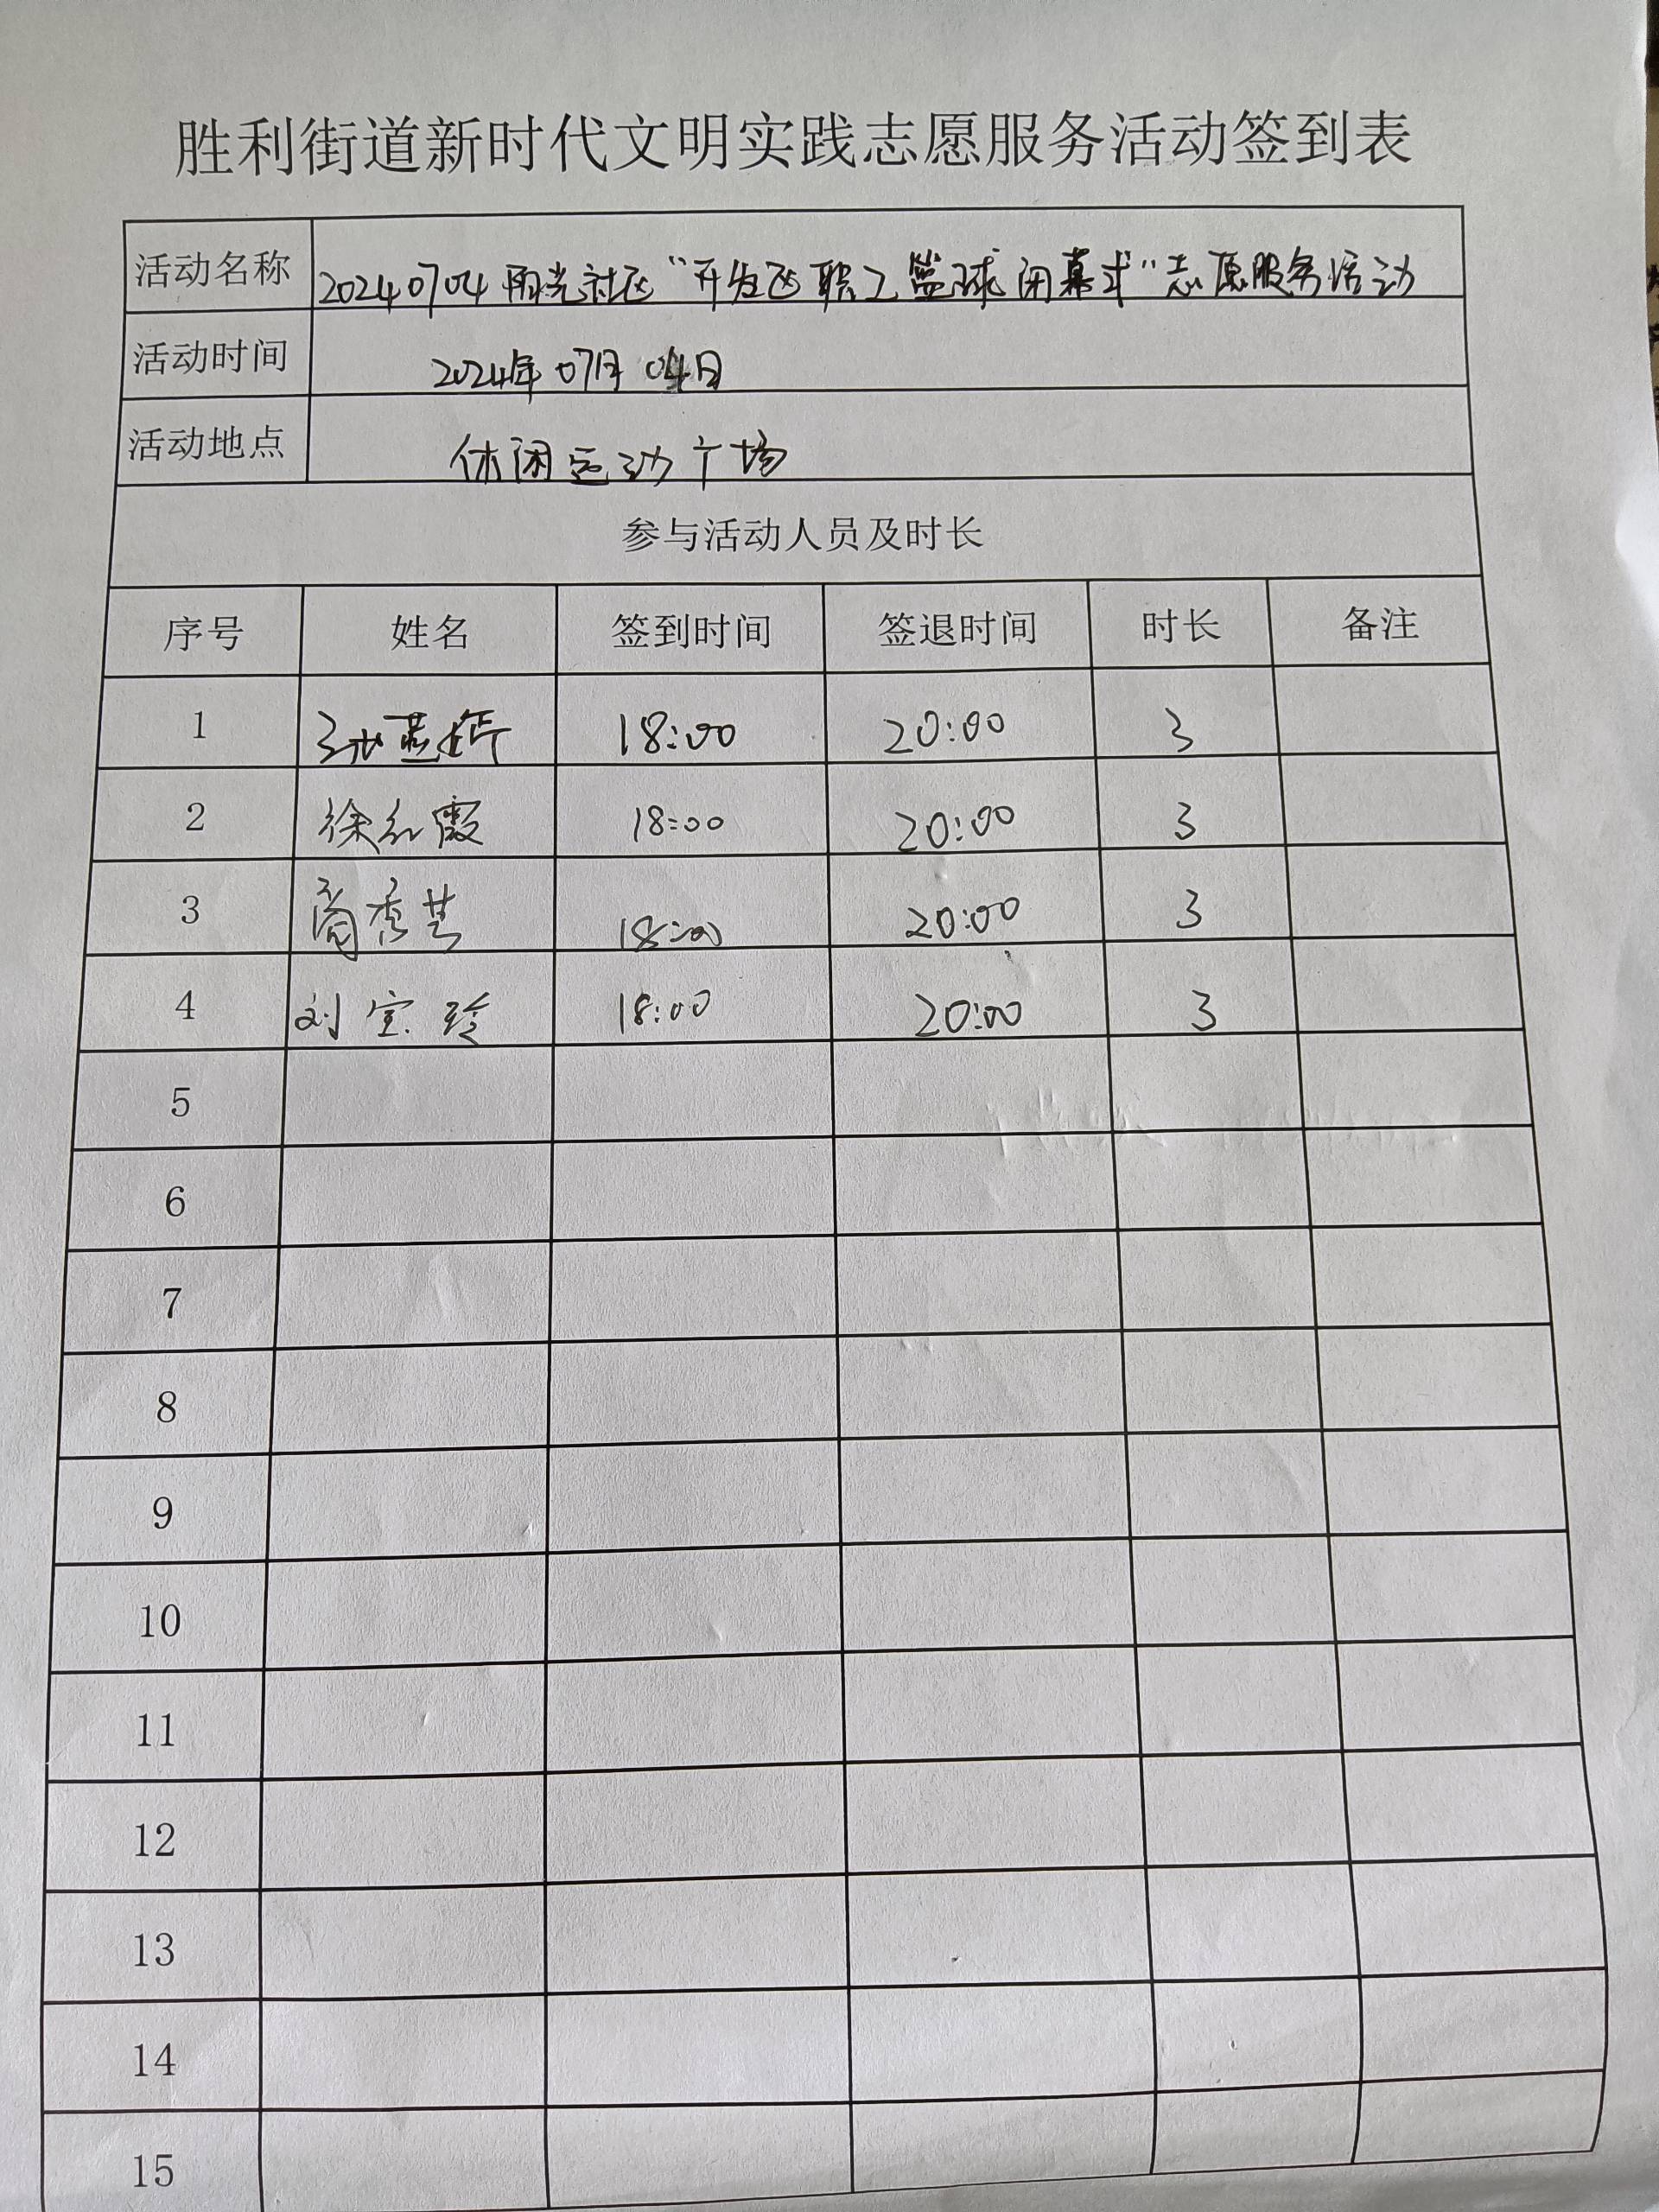 胜利街道新时代文明实践志愿服务活动签到表
活动名称 20240704阳光社区“开发区职工篮球闭幕式”志愿服务活动
活动时间 2024年07月04日
活动地点 休闲运动广场
参与活动人员及时长
序号 姓名 签到时间 签退时间 时长 备注
1 18:00 20:00 3
2 徐红霞 18:00 20:00 3
3 商秀芸 18:00 20:00 3
4 刘宝玲 18:00 20:00 3
5
6
7
8
9
10
11
12
13
14
15